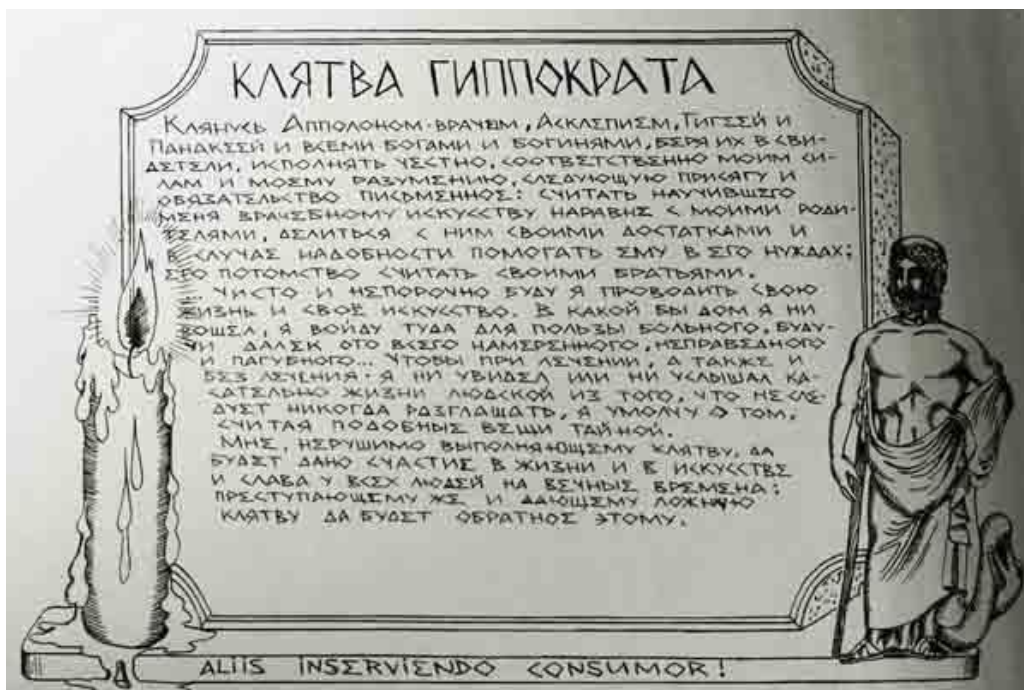 КЛЯТВА ГИППОКРАТА
Клянусь Апполоном-врачем, Асклепием, Гигеей и
Панакеей и всеми богами и богинями, беря их в сви-
детели, исполнять честно, соответственно моим си-
лам и моему разумению, следующую присягу и
обязательство письменное: считать научившего
меня врачебному искусству наравне с моими роди-
телями, делиться с ним своими достатками и
в случае надобности помогать ему в его нуждах;
его потомство считать своими братьями.
... Чисто и непорочно буду я проводить свою
жизнь и своё искусство. В какой бы дом я ни
вошел, я войду туда для пользы больного, буду-
чи далек ото всего намеренного, неправедного
и пагубного... Чтобы при лечении, а также и
без лечения-я ни увидел или ни услышал ка-
сательно жизни людской из того, что не сле-
дует никогда разглащать, я умолчу о том,
считая подобные вещи тайной.
Мне, нерушимо выполняющему клятву, да
будет дано счастие в жизни и в искусстве
и слава у всех людей на вечные времена;
преступающему же и дающему ложную
клятву да будет обратное этому.
ALIIS INSERVIENDO CONSUMOR!